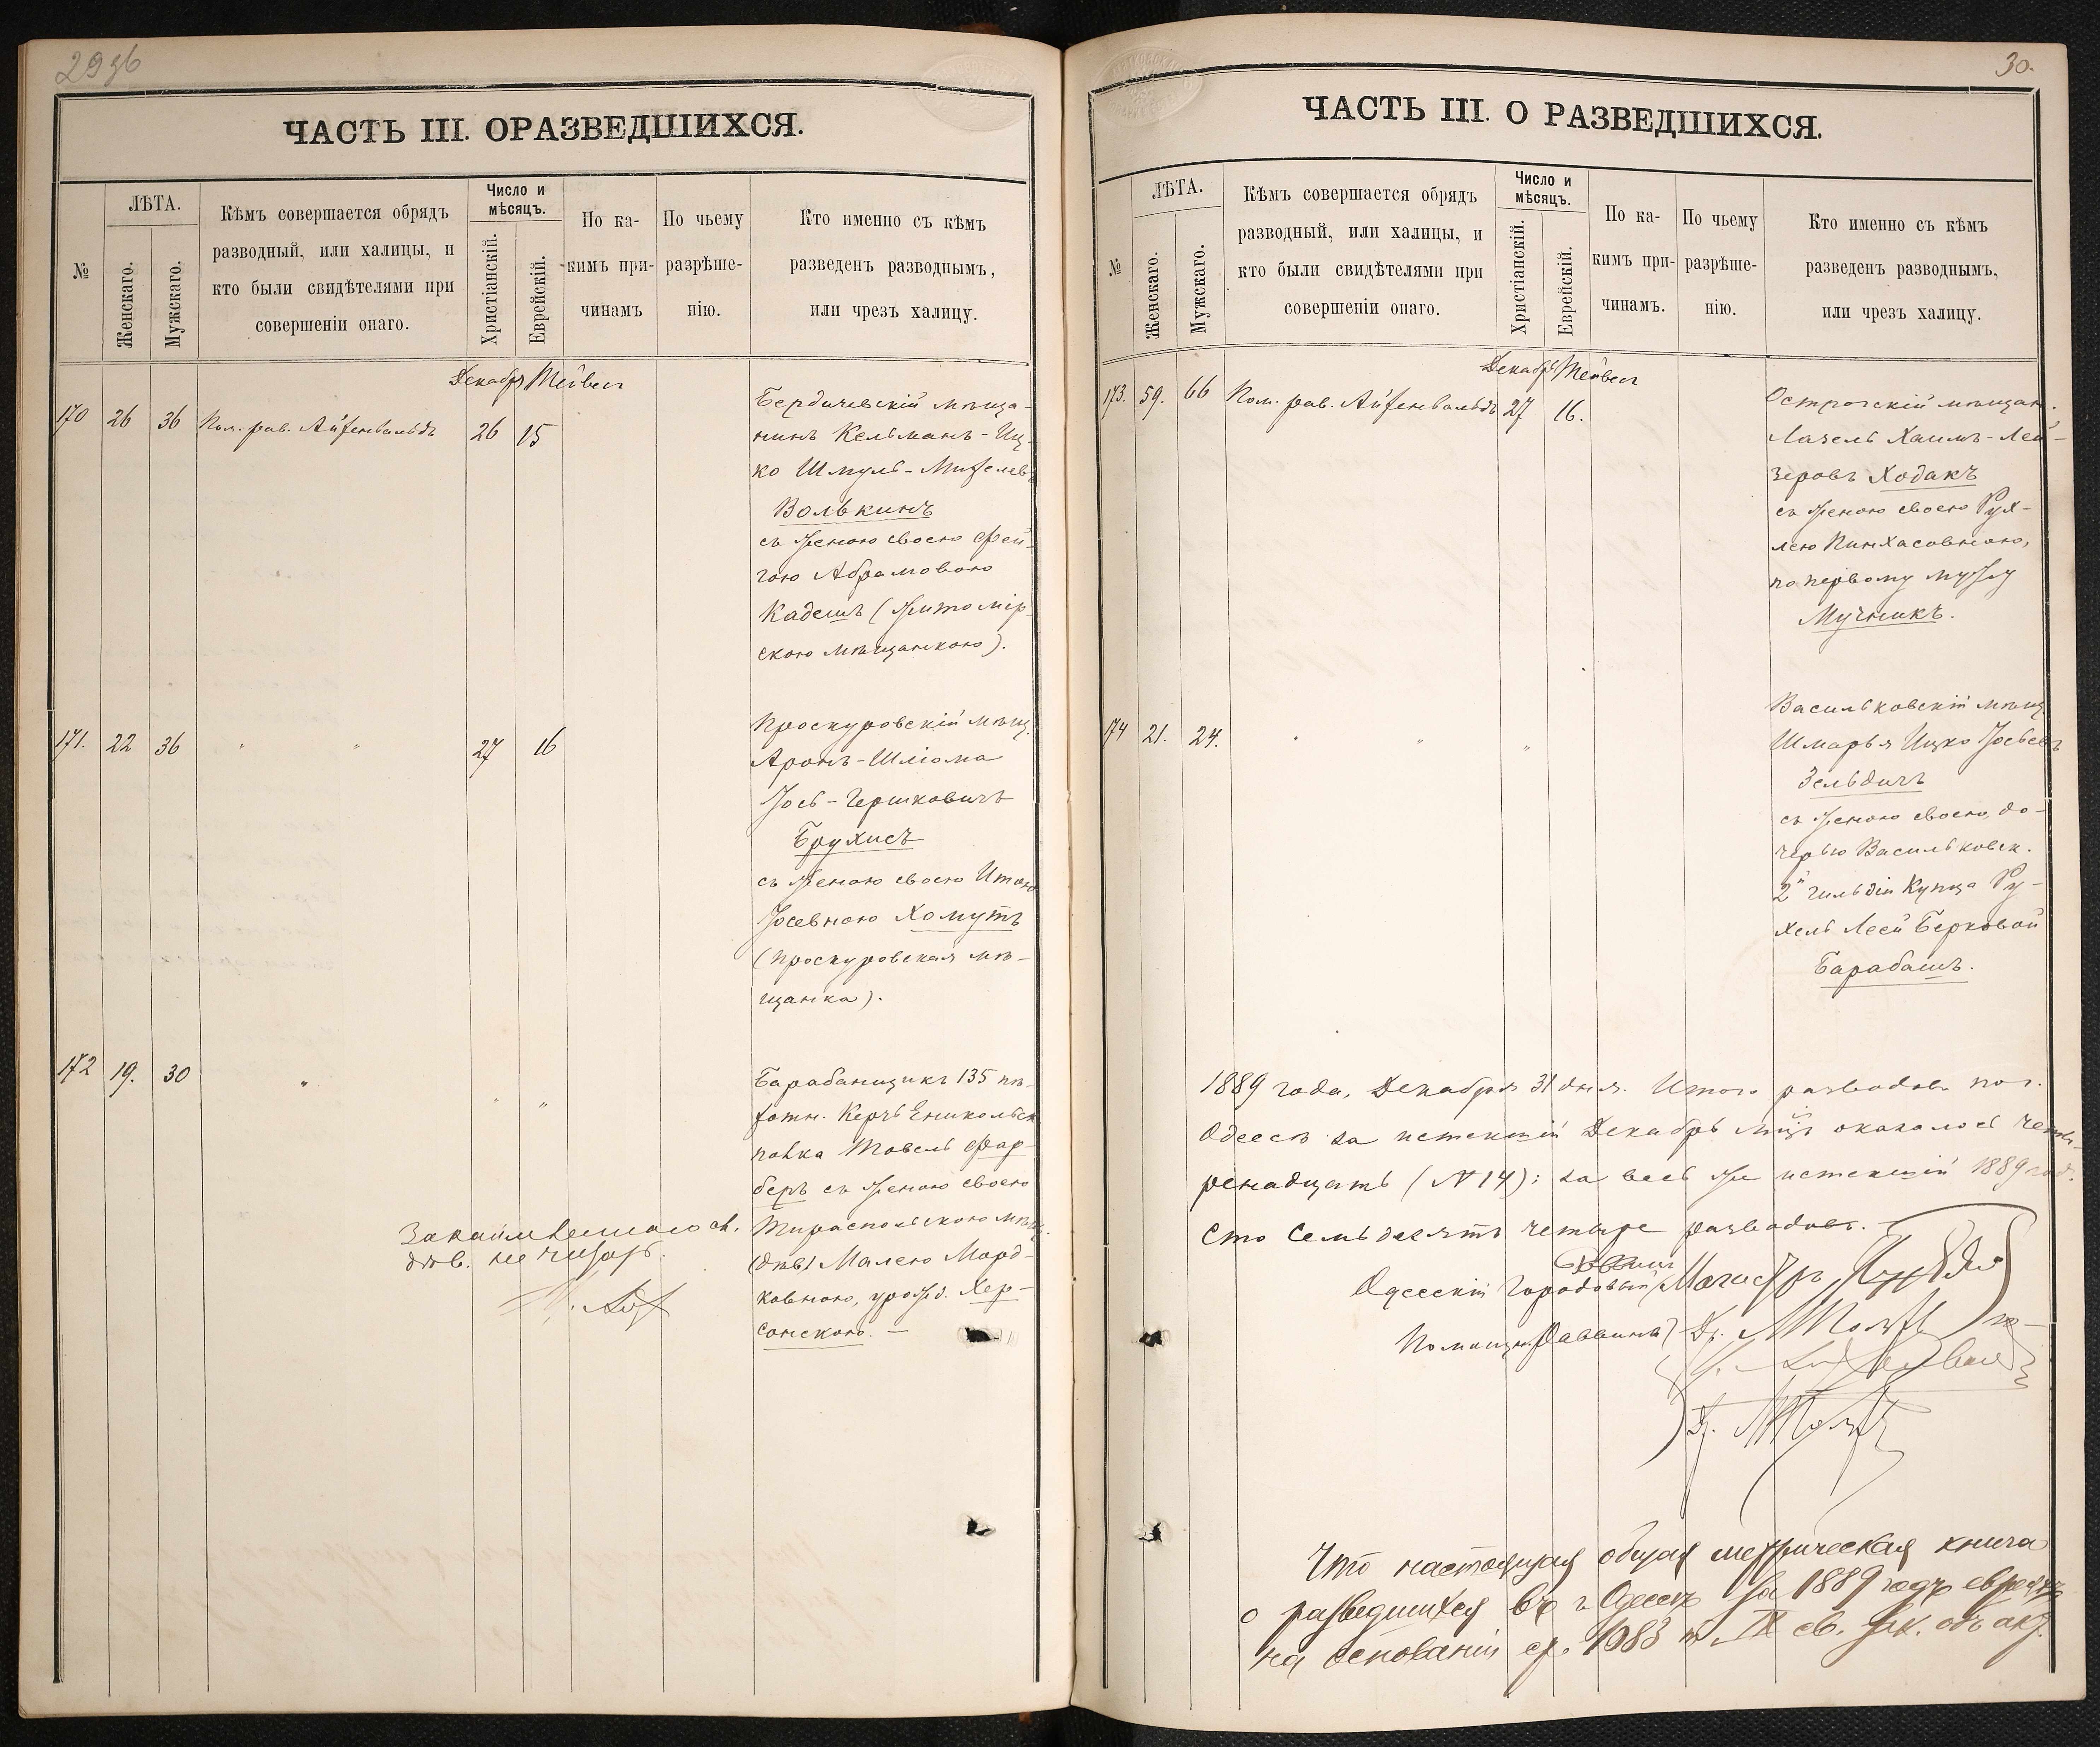 29 об
ЧАСТЬ III. О РАЗВЕДШИХСЯ.
№
ЛѢТА.
Женскаго.
Мужскаго.
Кѣмъ совершается обрядъ
разводный, или халицы, и
кто были свидѣтелями при
совершеніи онаго.
Число и
мѣсяцъ.
Христіанскій.
Еврейскій.
По ка-
кимъ при-
чинамъ
По чьему
разрѣше-
нію.
Кто именно съ кѣмъ
разведенъ разводнымъ,
или чрезъ халицу.
Декабрь Тейвеса
170 26 36 Пом. рав. Айзенвальдъ 26 15
Бердичевскій мѣща-
нинъ Кельманъ-Иц-
ко Шмуль-Мизелевъ
Волькинъ
съ женою своею Фей-
гою Абрамовою
Кадешъ (житомір-
скою мѣщанкою).
171. 22 36 " " 27 16
Проскуровскій мѣщ.
Аронъ-Шліома
Іось-Гершковичъ
Брухисъ
съ женою своею Итою
Іосевною Хомутъ
(Проскуровская мѣ-
щанка).
172 19. 30 " " "
Барабанщикъ 135 пѣ-
хотн. Керчь Еникольск
полка Товель Фар-
беръ съ женою своею
Тираспольскою мѣщ.
(дѣв) Малею Морд-
ковною, урожд. Хер-
сонскою. —
дѣв. не читать.
30.
ЧАСТЬ III. О РАЗВЕДШИХСЯ.
№
ЛѢТА.
Женскаго.
Мужскаго.
Кѣмъ совершается обрядъ
разводный, или халицы, и
кто были свидѣтелями при
совершеніи онаго.
Число и
мѣсяцъ.
Христіанскій.
Еврейскій.
По ка-
кимъ при-
чинамъ.
По чьему
разрѣше-
нію.
Кто именно съ кѣмъ
разведенъ разводнымъ,
или чрезъ халицу.
Декабрь Тейвеса
173. 59. 66 Пом. рав. Айзенвальдъ 27 16.
Острогскій мѣщан.
Лазель Хаимъ-Лей-
зеровъ Ходакъ
съ женою своею Рух-
лею Пинхасовною,
по первому мужу
Мучникъ.
174 21. 24. " " "
Васильковскій мѣщ
Шмарья Ицко Іосьевъ
Зельдичъ
съ женою своею, до-
черью Васильковск.
2й гильдіи Купца Ру-
хель Леей Берковой
Барабашъ.
1889 года, Декабря 31 дня. Итого разводовъ по г.
Одессѣ за истекшій Декабрь мѣц оказалось четы-
ренадцать (№ 14); за весь же истекшій 1889 год.
сто семьдесятъ четыре разводовъ. —
Раввин
Одесскій Городовый Магистръ
Помощн. Раввина Др.
Что настоящая общая метрическая книга
о разведшихся въ г. Одессѣ за 1889 годъ евреяхъ
на основаніи ст. 1083 т IX св. зак. объ акт.